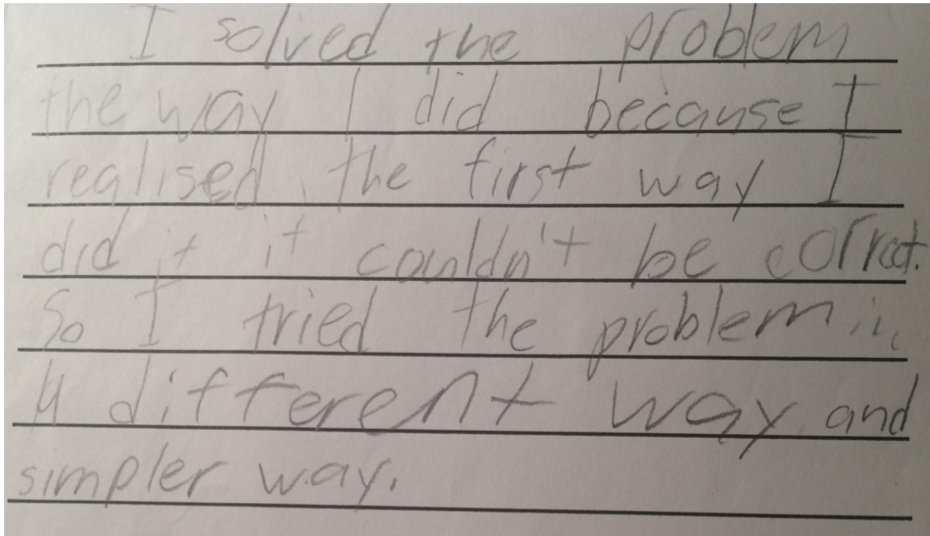 I solved the problem
the way I did because I
realised the first way I
did it it couldn't be corract.
So I tried the problem in
a different way and
simpler way.